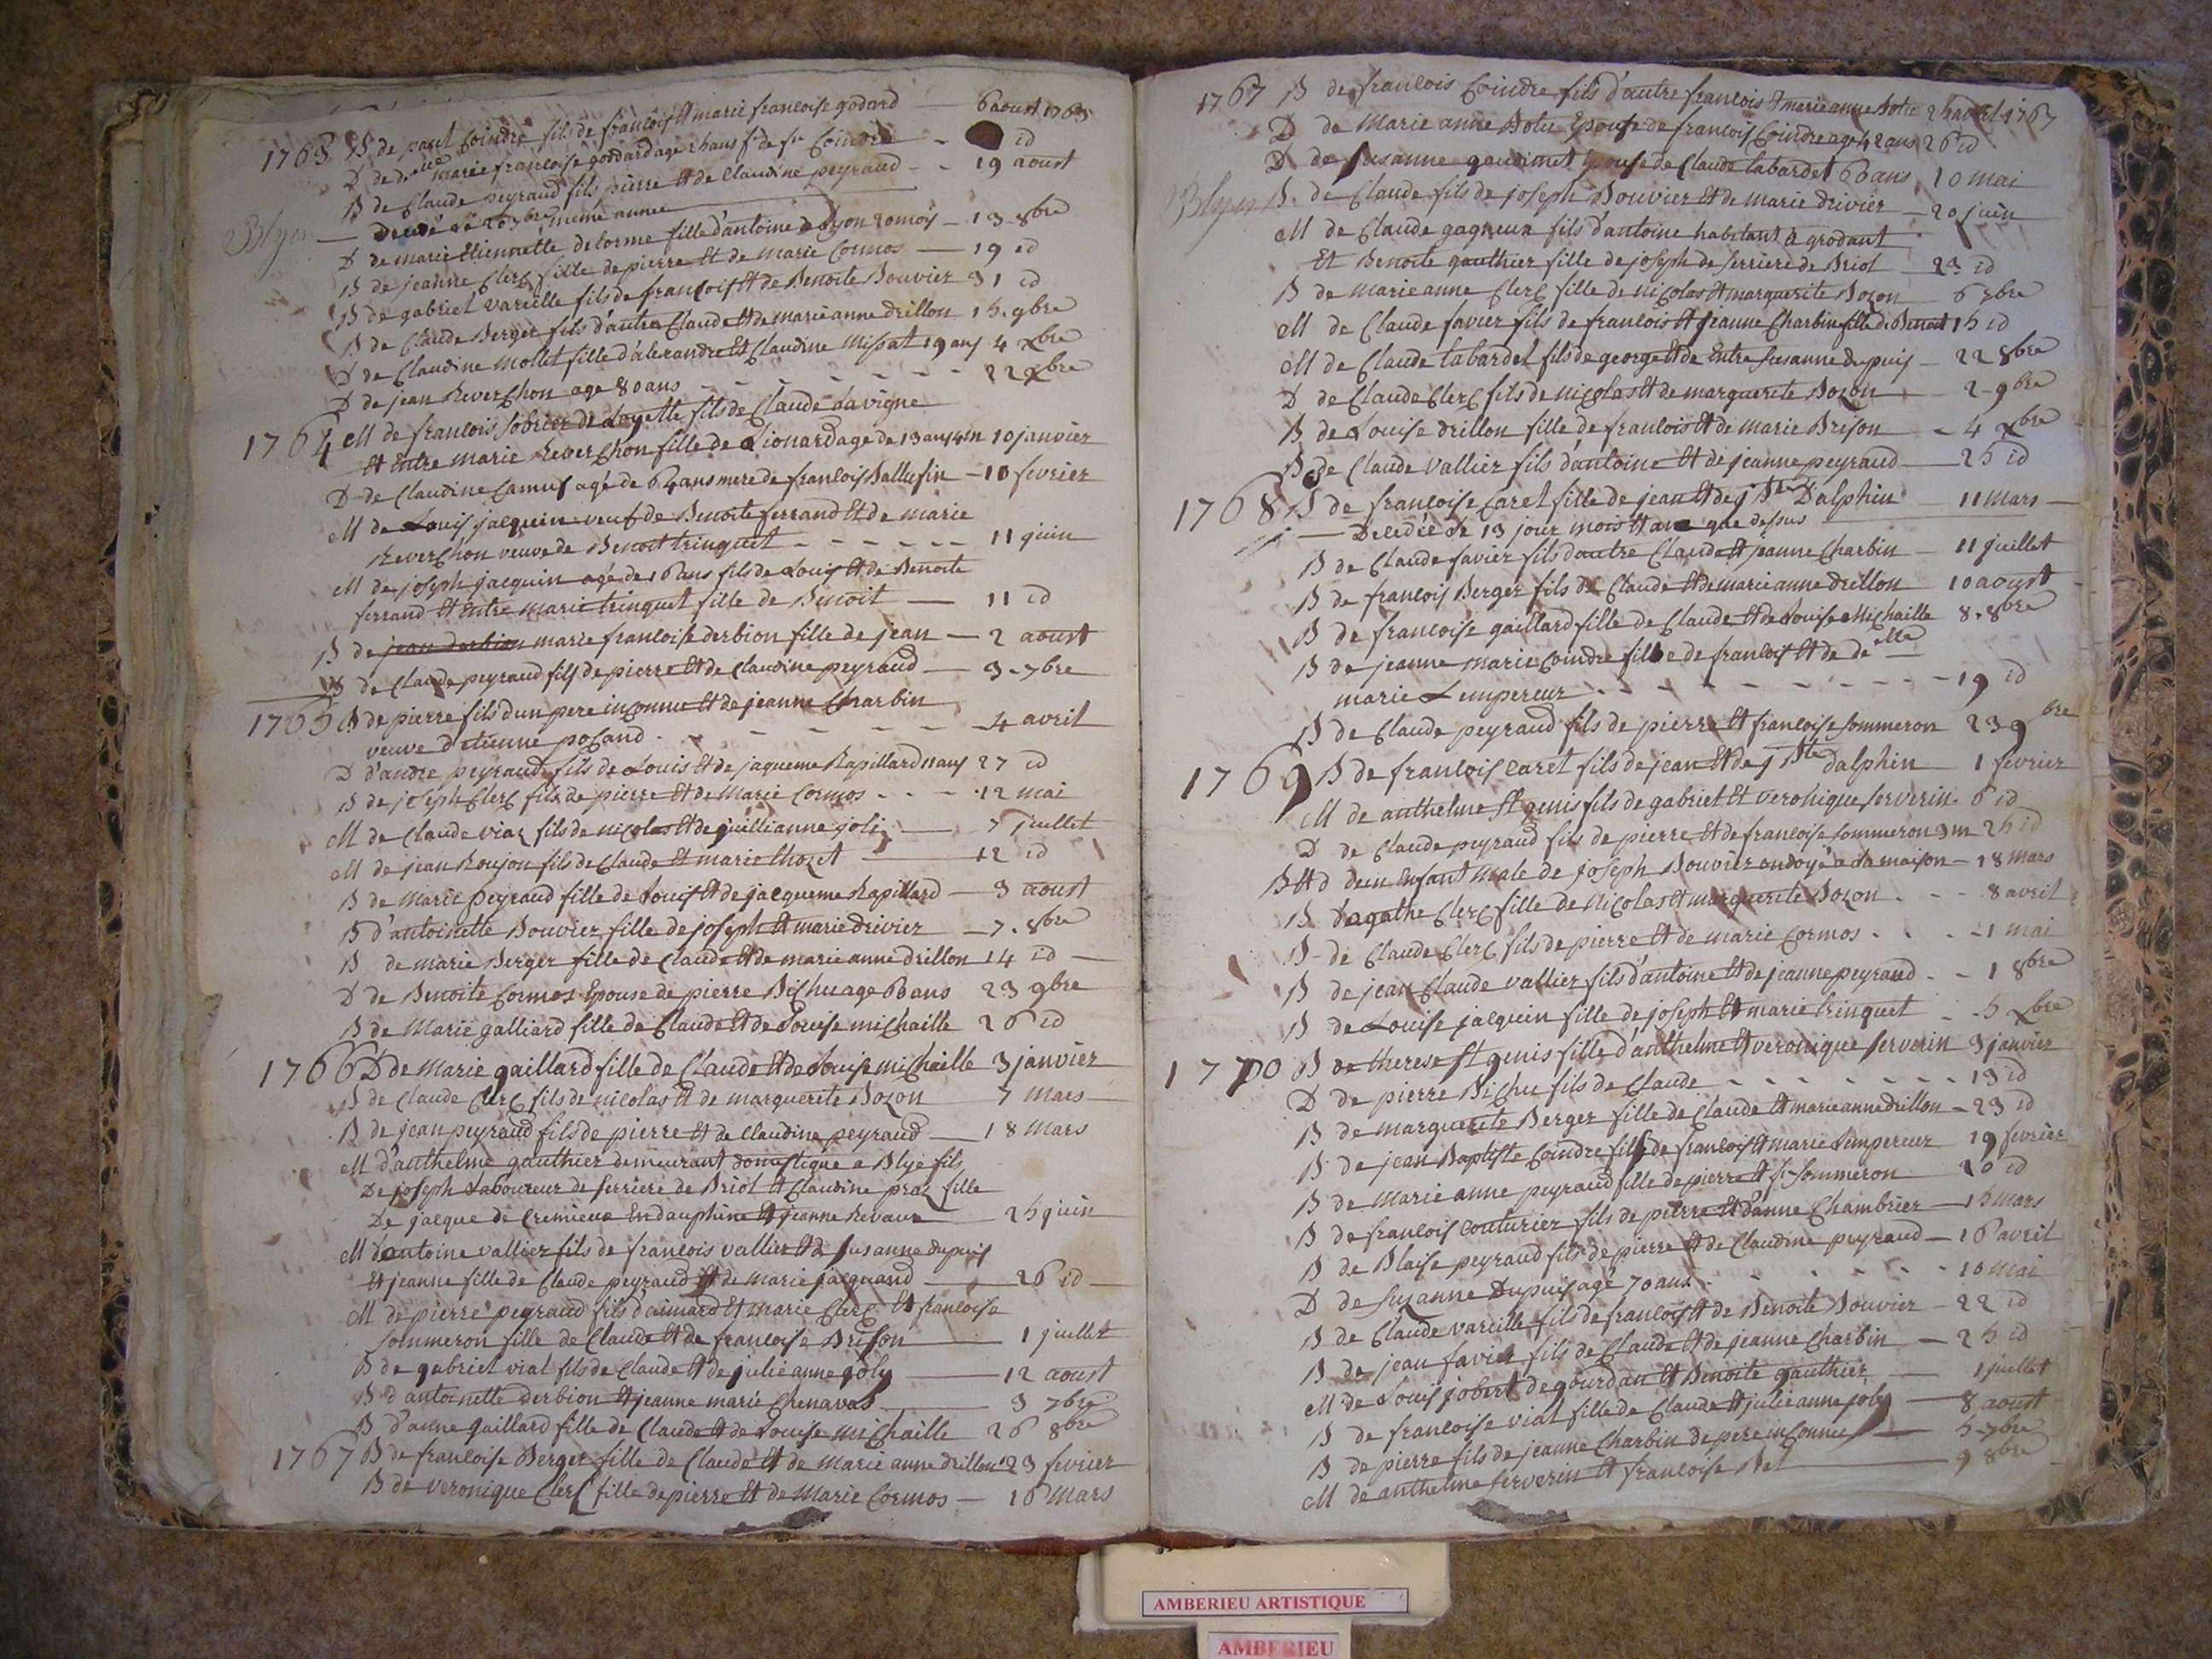 1763 B de paul Coindre fils de francois Et marie francoise godard — 6 aoust 1763
D de d.elle marie francoise goddard age ans f.e de f.s Coindre - id
B de Claude peyraud fils pierre Et de Claudine peyraud - - 19 aoust
Blyes — même annee
D de marie Etiennette delorme fille d'antoine de Lyon 20 mois — 13 - 8bre
B de jeanne Clerc fille de pierre Et de marie Cormos — 19 id
B de gabriel vareille fils de francois Et de Benoite Bouvier 31 id
B de Claude Berger fils d'autre Claude Et de marie anne drillon 15 . 9bre
D de Claudine Mollet fille d'alexandre Et Claudine Missat 19 ans 4 xbre
D de jean ReverChon age 80 ans - - - - - - - 22 xbre
1764 M de francois Sobrier de Loyette fils de Claude Lavigne
Et Entre marie ReverChon fille de Lionard age de 13 ans 4 m 10 janvier
D de Claudine Camus agé de 64 ans mere de francois Ballufin — 10 fevrier
M de Louis jacquin veuf de Benoite ferrand Et de marie
ReverChon veuve de Benoit trinquet - - - - - - 11 juin
M de joseph jacquin agé de 16 ans fils de Louis Et de Benoite
ferrand Et Entre marie trinquet fille de Benoit — 11 id
B de jean derbion marie francoise derbion fille de jean — 2 aoust
B de Claude peyraud fils de pierre Et de Claudine peyraud — 3 - 7bre
1765 B de pierre fils d'un pere inConnu Et de jeanne Charbin
veuve d'etienne poCand - - - - - - 4 avril
D d'andre peyraud fils de Louis Et de jaqueme Rapillard 11 ans 27 id
B de joseph Clerc fils de pierre Et de Marie Cormos - - - 12 mai
M de Claude viaz fils de nicolas Et de juillianne joli — 7 juillet
M de jean Roujon fils de Claude Et marie thozet — 12 id
B de Marie Peyraud fille de Louis Et de jacqueme Rapillard — 3 aoust
B d'antoinette Bouvier fille de joseph Et marie drivier — 7 . 8bre
B de marie Berger fille de Claude Et de marie anne drillon 14 id —
D de Benoite Cormos Epouse de pierre BiChu age 60 ans 23 9bre
B de Marie galliard fille de Claude Et de Louise miChaille 26 id
1766 D de Marie gaillard fille de Claude Et de Louise miChaille 3 janvier
B de Claude Clerc fils de nicolas Et de marguerite Bozon 7 Mars —
B de jean peyraud fils de pierre Et de Claudine peyraud — 18 Mars
M d'anthelme gauthier demeurant domestique a Blye fils
De joseph Laboureur de serriere de Briol Et Claudine praz fille
De jacque de Cremieux En dauphine Et jeanne Revaux — 25 juin
M d'antoine vallier fils de francois vallier Et de susanne dupuis
Et jeanne fille de Claude peyraud Et de Marie jacquand — 26 id —
M de pierre peyraud fils d'aimard Et marie Clerc Et francoise
Sommeron fille de Claude Et de francoise Brison — 1 juillet
B de gabriel vial fils de Claude Et de julie anne joly — 12 aoust
B d'antoinette derbion Et jeanne marie Chenavas — 3 7bre
B d'anne gaillard fille de Claude Et de Louise miChaille 26 8bre
1767 B de francoise Berger fille de Claude Et de Marie anne drillon 23 fevrier
B de veronique Clerc fille de pierre Et de Marie Cormos — 16 Mars
1767 B de francois Coindre fils d'autre francois Et marie anne Botu 25 avril 1767
D de Marie anne Botu Epouse de francois Coindre age 42 ans 26 id
D de susanne gaudimet Epouse de Claude Labardet 60 ans 10 mai
Blyes B. de Claude fils de joseph Bouvier Et de marie drivier — 20 juin
M de Claude gagneux fils d'antoine habitant a grodant
Et Benoite gauthier fille de joseph de serriere de Briol — 23 id
B de marie anne Clerc fille de niColas Et marguerite Bozon — 6 7bre
M de Claude favier fils de francois Et jeanne Charbin fille de Benoit 15 id
M de Claude Labardet fils de george Et de Entre susanne dupuis — 22 8bre
D de Claude Clerc fils de niColas Et de marguerite Bozon — 2 - 9bre
B de Louise drillon fille de francois Et de Marie Brison — 4 xbre
B de Claude vallier fils d'antoine Et de jeanne peyraud — 25 id
1768 B de francoise Caret fille de jean Et de j Bte Dalphin — 11 Mars —
— De 13 jour mois Et an que dessus
B de Claude favier fils d'autre Claude Et jeanne Charbin — 11 juillet
B de francois Berger fils de Claude Et de marie anne drillon 10 aoust
B de francoise gaillard fille de Claude Et de Louise MiChaille 8 . 8bre
B de jeanne marie Coindre fille de francois Et de delle
marie Lempereur - - - - - - - 19 id
B de Claude peyraud fils de pierre Et francoise sommeron 23 9bre
1769 B de francois Caret fils de jean Et de j Bte dalphin — 1 fevrier
M de anthelme St genis fils de gabriel Et veronique serverin - 6 id
D de Claude peyraud fils de pierre Et de francoise sommeron 3 m 25 id
B Et d d'un Enfant male de joseph Bouvier ondoyé a la maison — 18 mars
B d'agathe Clerc fille de niColas Et marguerite Bozon - - - 8 avril
B de Claude Clerc fils de pierre Et de marie Cormos - - - 1 mai
B de jean Claude vallier fils d'antoine Et de jeanne peyraud - - 1 8bre
B de Louise jacquin fille de joseph Et marie trinquet - 5 xbre
1770 B de therese St genis fille d'anthelme Et veronique serverin 3 janvier
D de pierre BiChu fils de Claude - - - - - - - 13 id
B de marguerite Berger fille de Claude Et marie anne drillon — 23 id
B de jean Baptiste Coindre fils de francois Et marie Lempereur 19 fevrier
B de Marie anne peyraud fille de pierre Et fse Sommeron 20 id
B de francois Couturier fils de pierre Et d'anne Chambrier — 15 mars
B de Blaise peyraud fils de pierre Et de Claudine peyraud — 16 avril
D de Suzanne Dupuis age 70 ans - - - - - 10 mai
B de Claude vareille fils de francois Et de Benoite Bouvier — 22 id
B de jean favier fils de Claude Et de jeanne Charbin — 25 id
M de Louis jobert de gourdan Et Benoite gauthier — 1 juillet
B de francoise vial fille de Claude Et julie anne joly — 8 aoust
B de pierre fils de jeanne Charbin de pere inConnu — 5 - 7bre
M de anthelme serverin Et francoise Bel — 9 8bre
AMBERIEU ARTISTIQUE
AMBERIEU